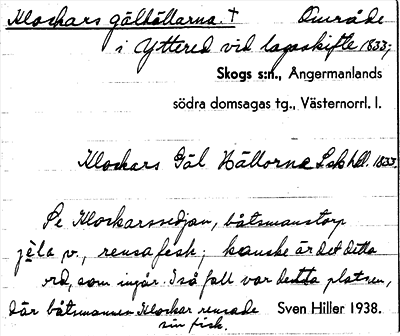 Klockars gälhällarna. † Område
i Yttered vid lagaskifte 1833;
Skogs s:n., Ångermanlands
södra domsagas tg., Västernorrl. l.
Klockars Gäl Hällorne Lskhdl. 1833.
Se Klockarssedjan, båtsmanstorp
jela v., rensa fisk; kanske är det detta
ord, som ingår. I så fall var detta platsen,
där båtsmannen Klockar rensade Sven Hiller 1938.
sin fisk.